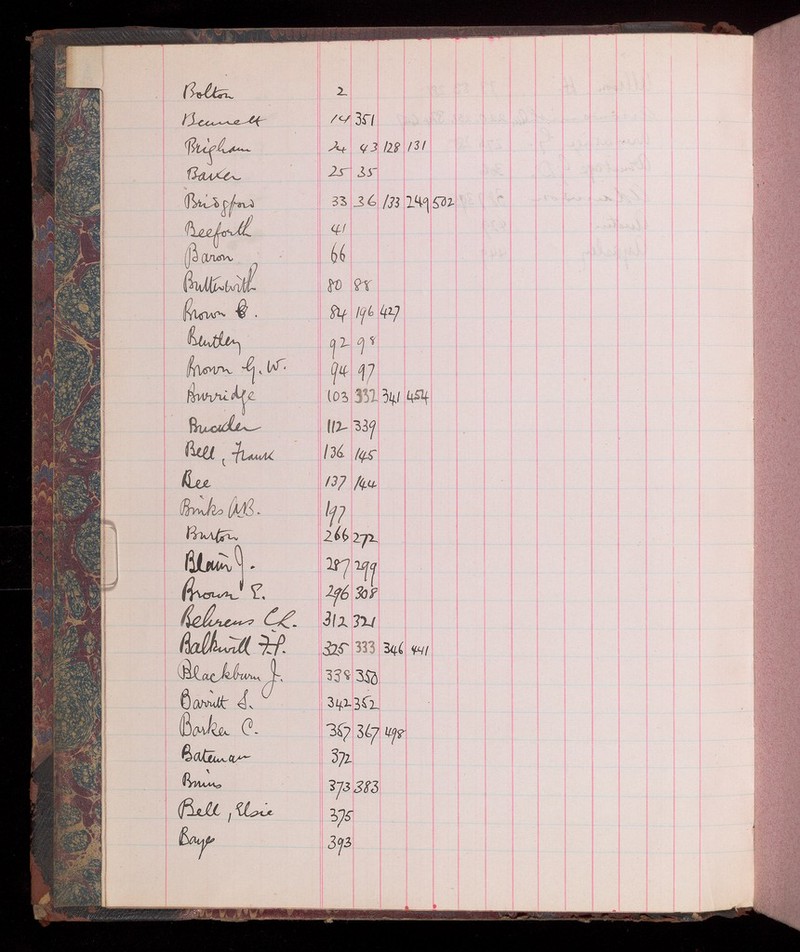 Bolton 2
Bennett 14 351
Brigham 24 43 128 131
Baxter 25 35
Bridgford 33 36 133 249 502
Beeforth 41
Baron 66
Butterworth 80 88
Brown 84 196 427
Bentley 92 98
Brown G. W. 94 97
Burridge 103 332 341 454
Buckler 112 339
Bell, Frank 136 145
Bee 137 144
Binks 197
Burton 266 272
Blain J. 287 299
Brown E. 296 308
Behrens Ch. 312 321
Balkwill F.P. 325 333 346 441
Blackburn J. 338 350
Barritt S. 342 352
Barker C. 357 367 498
Bateman 372
373 383
Bell, Elsie 375
Bayes 393